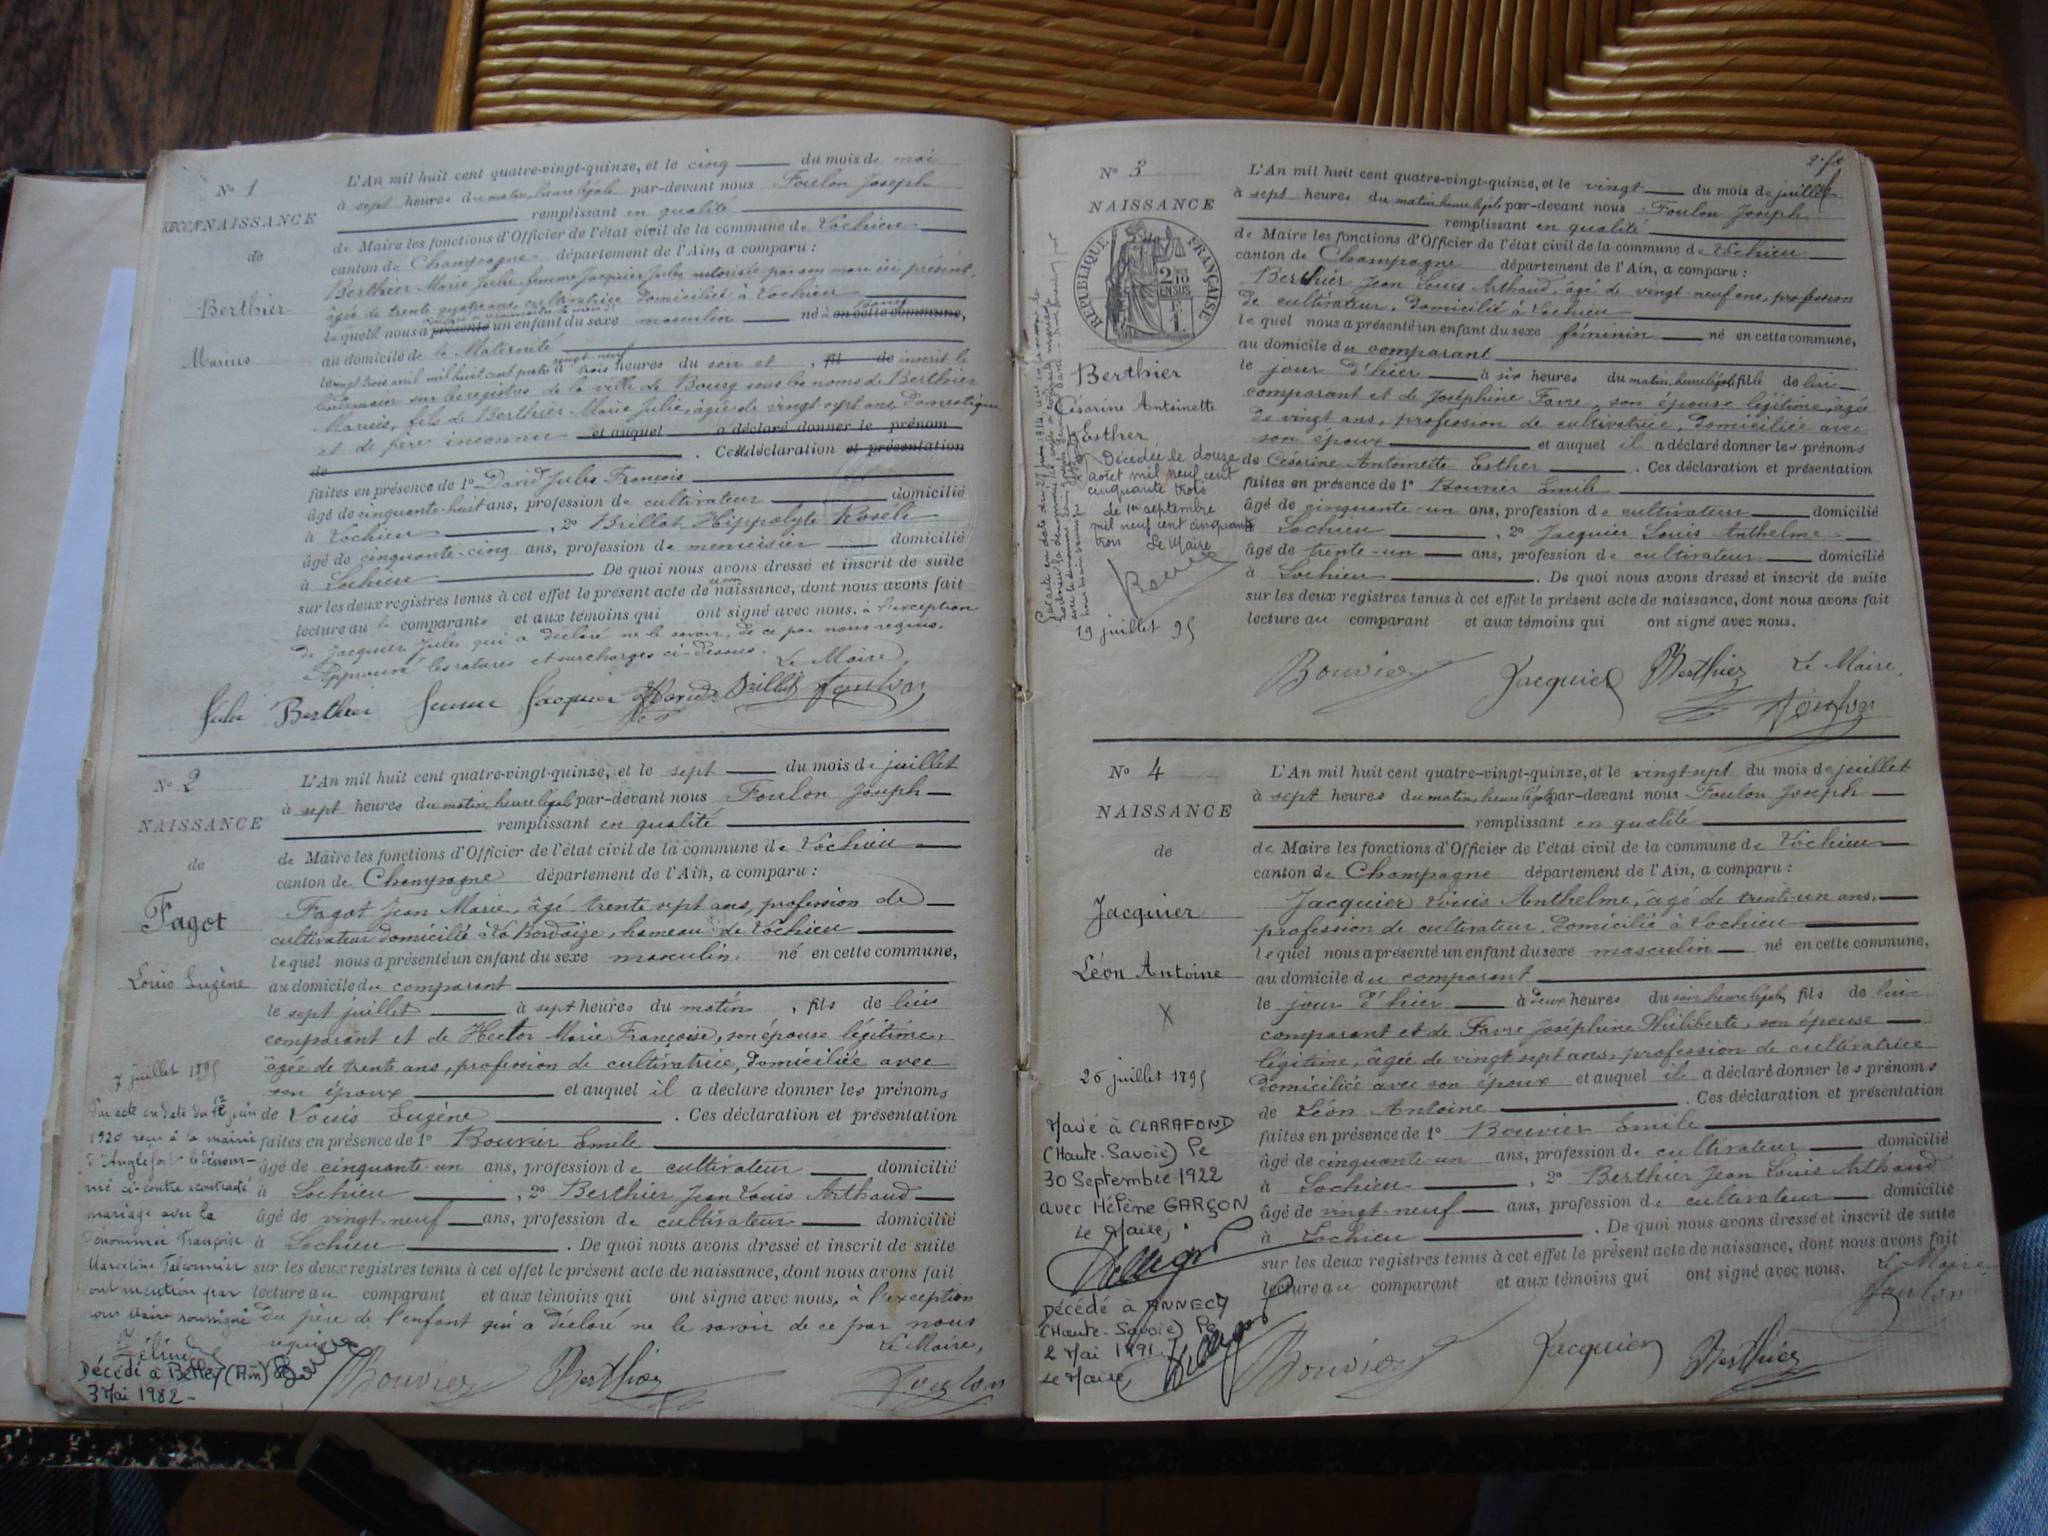 No 1
RECONNAISSANCE
de
Berthier
Marius
L'An mil huit cent quatre-vingt-quinze, et le cinq du mois de mai
à sept heures du matin, heure légale par-devant nous Foulon Joseph
remplissant en qualité
de Maire les fonctions d'Officier de l'état civil de la commune de Lochieu
canton de Champagne département de l'Ain, a comparu :
Berthier Marie Julie, femme Jacquier Jules autorisée par son mari ici présent,
âgée de trente-quatre ans, cultivatrice domiciliée à Lochieu
laquelle nous a présenté un enfant du sexe masculin né à Bourg en cette commune,
au domicile de la Maternité
le vingt trois mil huit cent à trois heures du soir et , fil de inscrit le
lendemain sur les registres de la ville de Bourg sous les noms de Berthier
Marius, fils de Berthier Marie Julie, âgée de vingt sept ans, domestique
et de père inconnu et auquel a déclaré donner le prénom
de . Cette déclaration et présentation
faites en présence de 1o David Jules François
âgé de cinquante-huit ans, profession de cultivateur domicilié
à Lochieu , 2o Brillat Hippolyte Roselli
âgé de cinquante-cinq ans, profession de menuisier domicilié
à Lochieu . De quoi nous avons dressé et inscrit de suite
sur les deux registres tenus à cet effet le présent acte de naissance, dont nous avons fait
lecture au comparants et aux témoins qui ont signé avec nous, à l'exception
de Jacquier Jules qui a déclaré ne le savoir, de ce par nous requis.
Approuvé les ratures et surcharges ci-dessus. Le Maire,
Julie Berthier femme Jacquier David Brillat Foulon
No 2
NAISSANCE
de
Fagot
Louis Eugène
7 juillet 1895
Par acte en date du 12 juin
1920 reçu à la mairie
d'Anglefort le dénom-
mé ci-contre a contracté
mariage avec la
dénommée Françoise
Marceline Falconnier
dont mention par
nous Maire soussigné
Décédé à Belley (Ain) le
3 Mai 1982 -
L'An mil huit cent quatre-vingt-quinze, et le sept du mois de juillet
à sept heures du matin, heure légale par-devant nous Foulon Joseph
remplissant en qualité
de Maire les fonctions d'Officier de l'état civil de la commune de Lochieu
canton de Champagne département de l'Ain, a comparu :
Fagot Jean Marie, âgé trente sept ans, profession de
cultivateur domicilié à La Bordaize, hameau de Lochieu
lequel nous a présenté un enfant du sexe masculin né en cette commune,
au domicile du comparant
le sept juillet à sept heures du matin , fils de lui
comparant et de Hector Marie Françoise, son épouse légitime,
âgée de trente ans, profession de cultivatrice, domiciliée avec
son époux et auquel il a déclaré donner les prénoms
de Louis Eugène . Ces déclaration et présentation
faites en présence de 1o Bouvier Emile
âgé de cinquante-un ans, profession de cultivateur domicilié
à Lochieu , 2o Berthier Jean Louis Arthaud
âgé de vingt-neuf ans, profession de cultivateur domicilié
à Lochieu . De quoi nous avons dressé et inscrit de suite
sur les deux registres tenus à cet effet le présent acte de naissance, dont nous avons fait
lecture au comparant et aux témoins qui ont signé avec nous, à l'exception
du père de l'enfant qui a déclaré ne le savoir de ce par nous
requis
Le Maire,
Bouvier Berthier Foulon
No 3
NAISSANCE
RÉPUBLIQUE FRANÇAISE
Berthier
Césarine Antoinette
Esther
Décédée le douze
août mil neuf cent
cinquante trois
le 1er septembre
mil neuf cent cinquante
trois Le Maire
19 juillet 95
L'An mil huit cent quatre-vingt-quinze, et le vingt du mois de juillet
à sept heures du matin, heure légale par-devant nous Foulon Joseph
remplissant en qualité
de Maire les fonctions d'Officier de l'état civil de la commune de Lochieu
canton de Champagne département de l'Ain, a comparu :
Berthier Jean Louis Arthaud, âgé de vingt-neuf ans, profession
de cultivateur, domicilié à Lochieu
lequel nous a présenté un enfant du sexe féminin né en cette commune,
au domicile du comparant
le jour d'hier à six heures du matin heure légale fille de lui
comparant et de Joséphine Favre, son épouse légitime, âgée
de vingt ans, profession de cultivatrice, domiciliée avec
son époux et auquel il a déclaré donner les prénoms
de Césarine Antoinette Esther . Ces déclaration et présentation
faites en présence de 1o Bouvier Emile
âgé de cinquante-un ans, profession de cultivateur domicilié
à Lochieu , 2o Jacquier Louis Anthelme
âgé de trente-un ans, profession de cultivateur domicilié
à Lochieu . De quoi nous avons dressé et inscrit de suite
sur les deux registres tenus à cet effet le présent acte de naissance, dont nous avons fait
lecture au comparant et aux témoins qui ont signé avec nous.
Bouvier Jacquier Berthier Le Maire,
Foulon
No 4
NAISSANCE
de
Jacquier
Léon Antoine
X
26 juillet 1895
Marié à CLARAFOND
(Haute-Savoie) le
30 Septembre 1922
avec Hélène GARÇON
Le Maire,
Décédé à ANNECY
(Haute-Savoie) le
2 Mai 1991.
Le Maire,
L'An mil huit cent quatre-vingt-quinze, et le vingt-sept du mois de juillet
à sept heures du matin, heure légale par-devant nous Foulon Joseph
remplissant en qualité
de Maire les fonctions d'Officier de l'état civil de la commune de Lochieu
canton de Champagne département de l'Ain, a comparu :
Jacquier Louis Anthelme, âgé de trente-un ans,
profession de cultivateur, domicilié à Lochieu
lequel nous a présenté un enfant du sexe masculin né en cette commune,
au domicile du comparant
le jour d'hier à deux heures du soir heure légale, fils de lui
comparant et de Favre Joséphine Philiberte, son épouse
légitime, âgée de vingt sept ans, profession de cultivatrice
domiciliée avec son époux et auquel il a déclaré donner les prénoms
de Léon Antoine . Ces déclaration et présentation
faites en présence de 1o Bouvier Emile
âgé de cinquante-un ans, profession de cultivateur domicilié
à Lochieu , 2o Berthier Jean Louis Arthaud
âgé de vingt-neuf ans, profession de cultivateur domicilié
à Lochieu . De quoi nous avons dressé et inscrit de suite
sur les deux registres tenus à cet effet le présent acte de naissance, dont nous avons fait
lecture au comparant et aux témoins qui ont signé avec nous. Le Maire
Foulon
Bouvier Jacquier Berthier